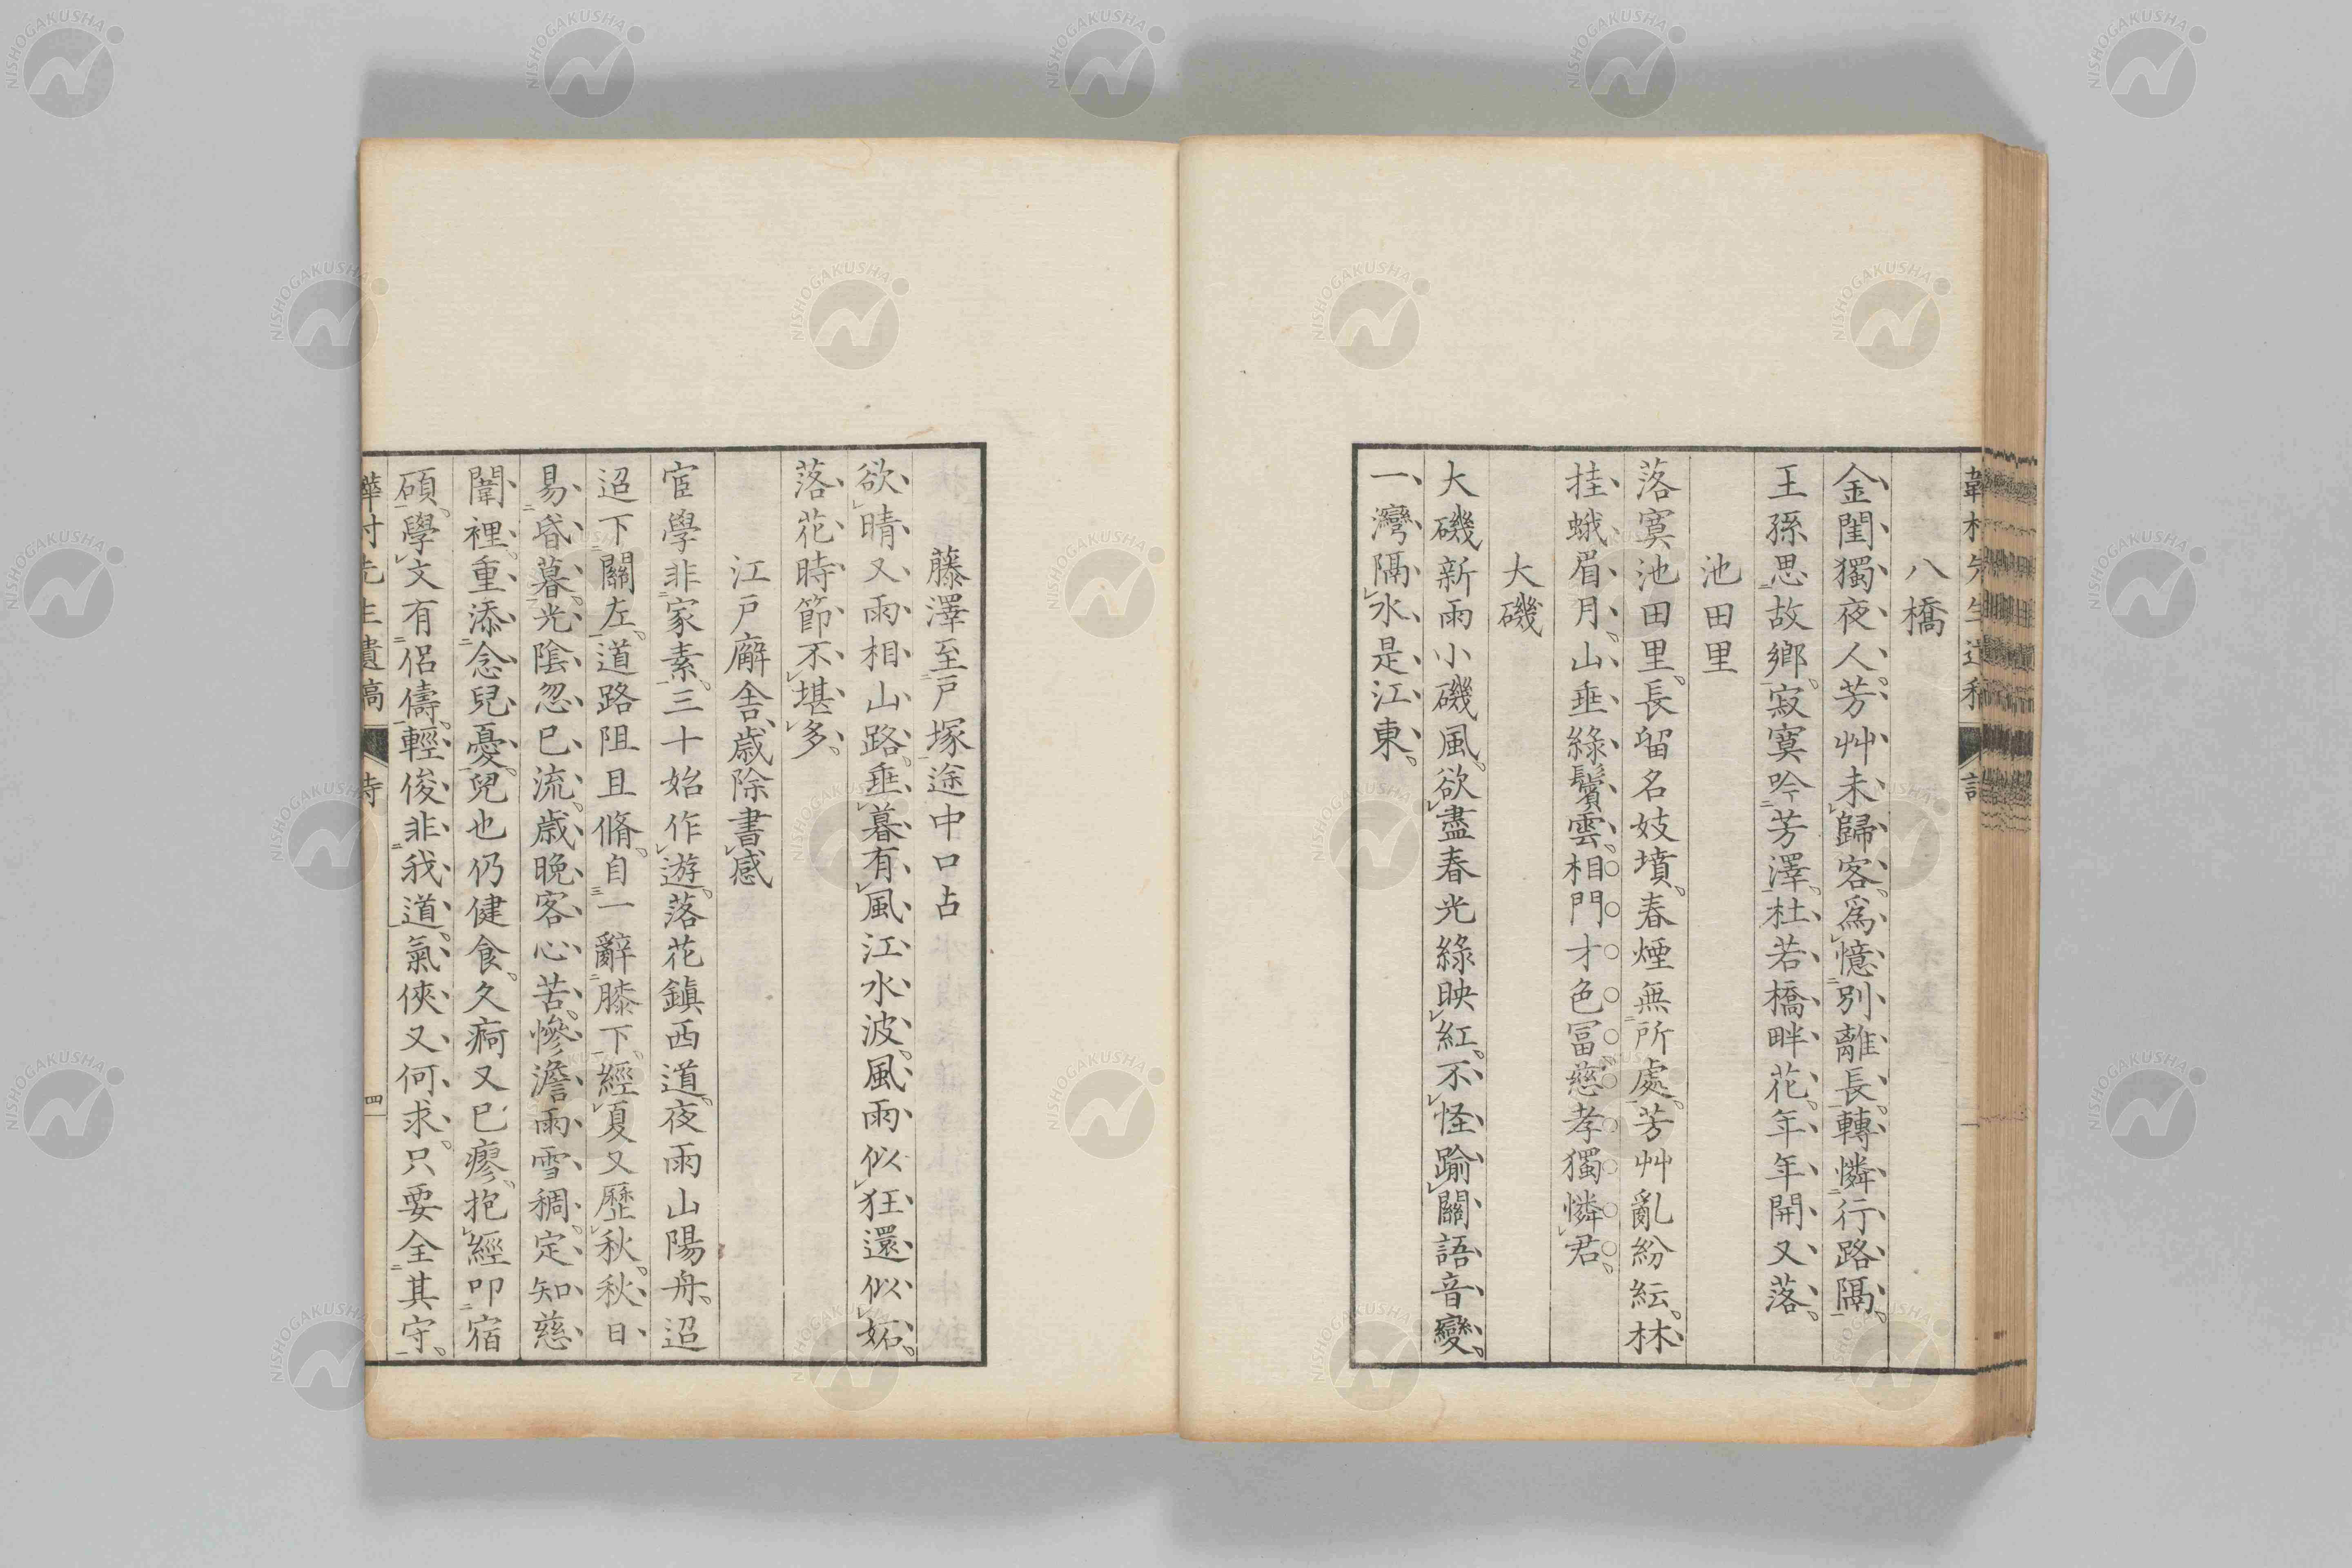 八橋
金閨獨夜人。芳艸未歸客。爲憶別離長。轉憐行路隔。
王孫思故鄉。寂寞吟芳澤。杜若橋畔花。年年開又落。
池田里
落寞池田里。長留名妓墳。春煙無所處。芳艸亂紛紜。林
挂蛾眉月。山垂綠鬢雲。相門才色冨。慈孝獨憐君。
大磯
大磯新雨小磯風。欲盡春光綠映紅。不怪踰關語音變。
一灣隔水是江東。
藤澤至戸塚途中口占
欲晴又雨相山路。垂暮有風江水波。風雨似狂還似妬。
落花時節不堪多。
江戸廨舍歲除書感
宦學非家素。三十始作遊。落花鎭西道。夜雨山陽舟。迢
迢下關左。道路阻且脩。自一辭膝下。經夏又歷秋。秋日
易昏暮。光陰忽已流。歲晚客心苦。慘澹雨雪稠。定知慈
闈裡。重添念兒憂。兒也仍健食。久痾又已瘳。抱經叩宿
碩。學文有侶儔。輕俊非我道。氣俠又何求。只要全其守。
先生遺稿
四
NISHOGAKUSHA